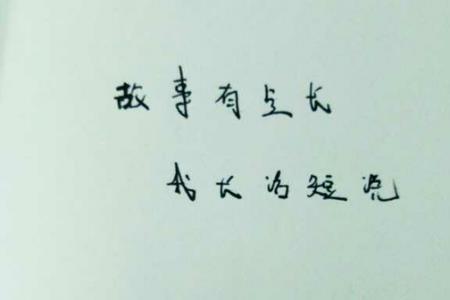 故事有点长
我长话短说